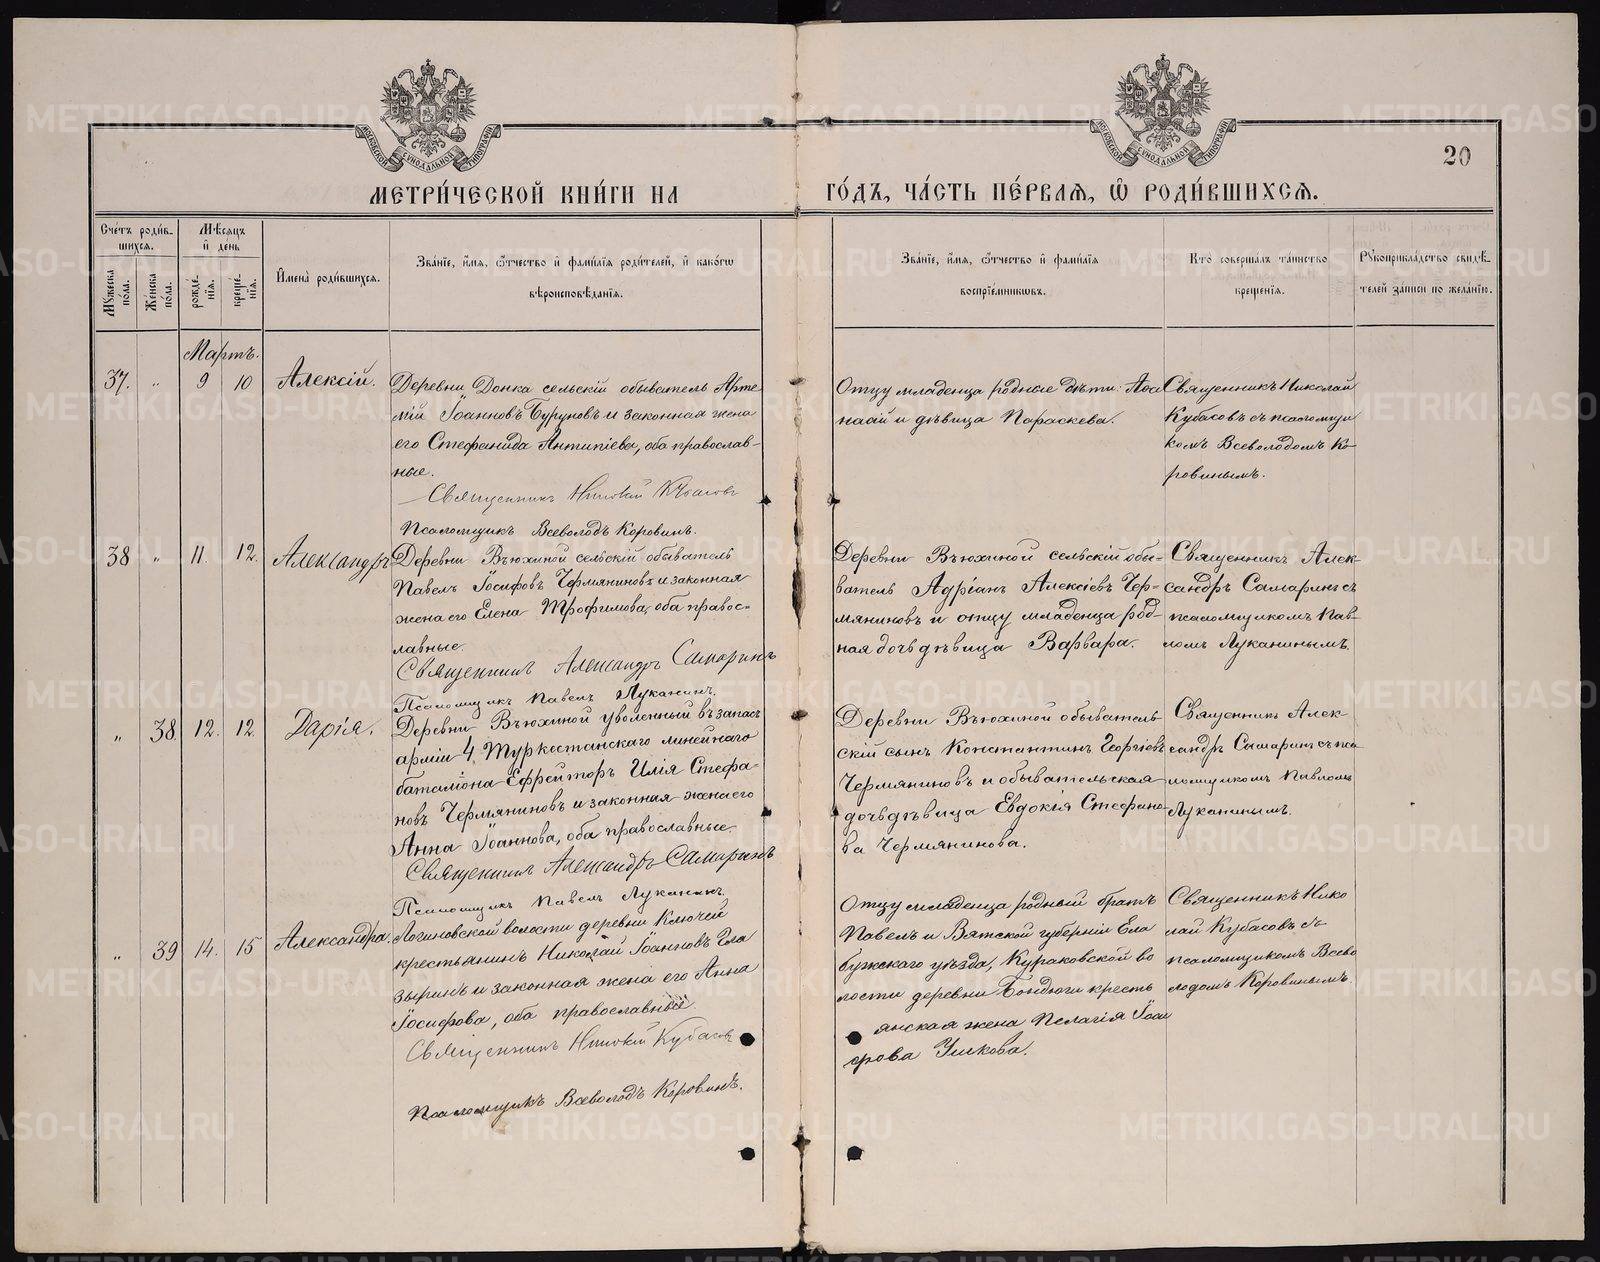 МОСКОВСКОЙ СѴНОДАЛЬНОЙ ТИПОГРАФІИ
МОСКОВСКОЙ СѴНОДАЛЬНОЙ ТИПОГРАФІИ
20
МЕТРИ́ЧЕСКОЙ КНИ́ГИ НА ГО́ДЪ, ЧА́СТЬ ПЕ́РВАЯ, Ѽ РОДИ́ВШИХСЯ.
Сче́тъ роди́в-
шихся.
Мꙋжеска по́ла.
Же́нска по́ла.
Мѣ́сяцъ
и̂ день
рожде́-
нїѧ.
креще́-
нїѧ.
И҆мена̀ роди́вшихся.
Зва́нїе, и҆́мя, ѻ҆́тчество и҆ фами́лїя роди́телей, и҆ како́гѡ
вѣроисповѣ́данїя.
Зва́нїе, и҆́мя, ѻ҆́тчество и҆ фами́лїя
воспрїе́мникѡвъ.
Кто̀ соверша́лъ та́инство
креще́нїя.
Рꙋкоприкла́дство свидѣ́-
телей за́писи по жела́нїю.
Мартъ.
37. „ 9 10 Алексій.
Деревни Донка сельскій обыватель Арте-
мій Іоанновъ Буруновъ и законная жена
его Стефанида Антипіева, оба православ-
ные.
Священникъ Николай Кубасовъ
Псаломщикъ Всеволодъ Коровинъ.
Отцу младенца родные дѣти:
и дѣвица Параскева.
Священникъ Николай
Кубасовъ съ псаломщи
комъ Всеволодомъ Ко-
ровинымъ.
38 „ 11. 12. Александръ
Деревни Вьюхиной сельскій обыватель
Павелъ Іосифовъ Чермяниновъ и законная
жена его Елена Трофимова, оба правос-
лавные.
Священникъ Александръ Самаринъ
Псаломщикъ Павелъ Луканинъ.
Деревни Вьюхиной сельскій обы-
ватель Адріанъ Алексіевъ Чер-
мяниновъ и отцу младенца род-
ная дочь дѣвица Варвара.
Священникъ Алек-
сандръ Самаринъ съ
псаломщикомъ Пав-
ломъ Луканинымъ.
„ 38 12. 12. Дарія.
Деревни Вьюхиной уволенный въ запасъ
арміи 4, Туркестанскаго линейнаго
баталіона Ефрейторъ Илія Стефа-
новъ Чермяниновъ и законная жена его
Анна Іоаннова, оба православные.
Священникъ Александръ Самаринъ
Псаломщикъ Павелъ Луканинъ.
Деревни Вьюхиной обыватель-
скій сынъ Константинъ Георгіевъ
Чермяниновъ и обывательская
дочь дѣвица Евдокія Стефано-
ва Чермянинова.
Священникъ Алек-
сандръ Самаринъ съ пса
ломщикомъ Павломъ
Луканинымъ.
„ 39 14. 15 Александра.
Логиновской волости деревни Ключей
крестьянинъ Николай Іоанновъ Гла
зыринъ и законная жена его Анна
Іосифова, оба православные
Священникъ Николай Кубасовъ
Псаломщикъ Всеволодъ Коровинъ.
Отцу младенца родный братъ
Павелъ и Вятской губерніи Ела
бужскаго уѣзда, Кураковской во
лости деревни Бондюги кресть
янская жена Пелагія
Ушкова.
Священникъ Нико
лай Кубасовъ съ
псаломщикомъ Всево
лодомъ Коровинымъ.
METRIKI.GASO-URAL.RU